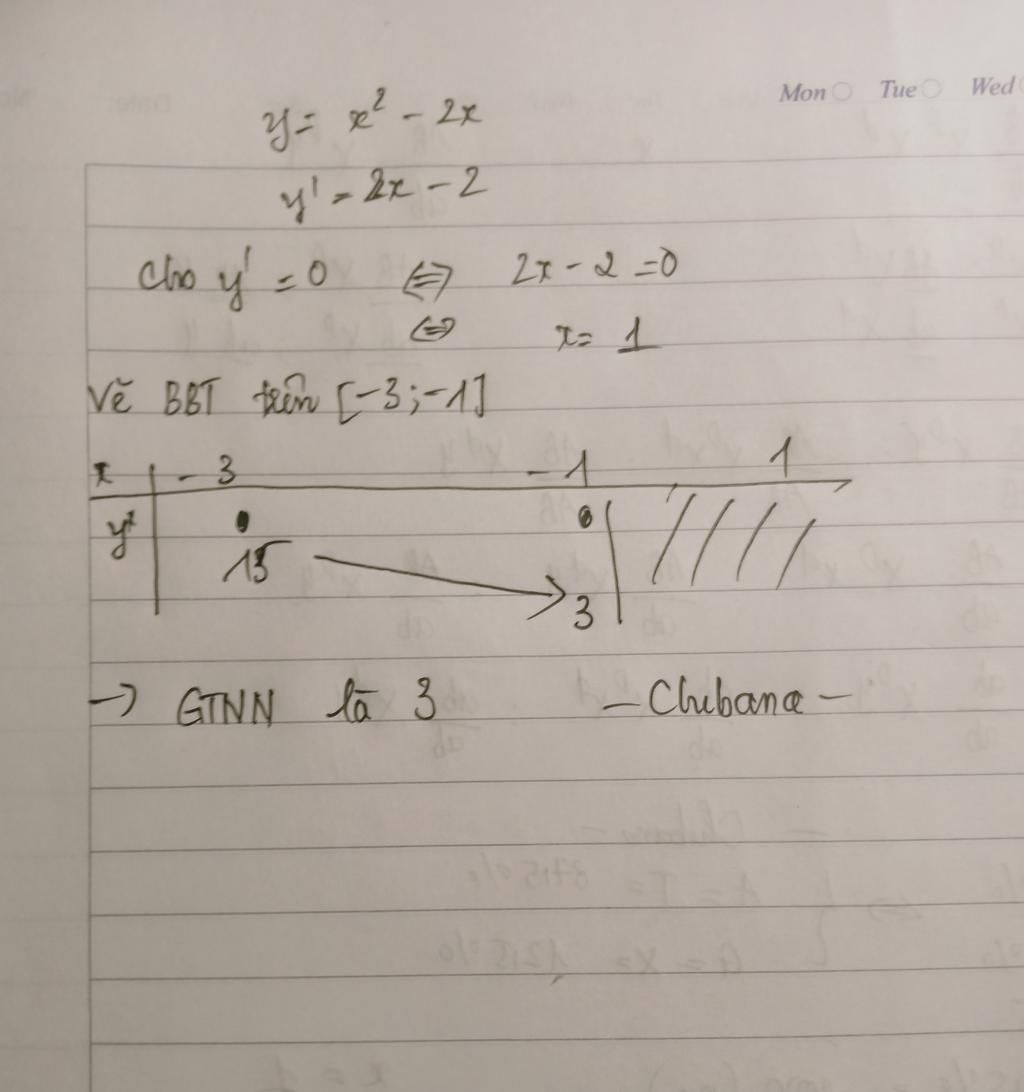 Mon Tue Wed
y = x² - 2x
y' = 2x - 2
Cho y' = 0 ⇔ 2x - 2 = 0
⇔ x = 1
Vẽ BBT trên [-3; -1]
x -3 -1 1
15
3
→ GTNN là 3 - Chibana -